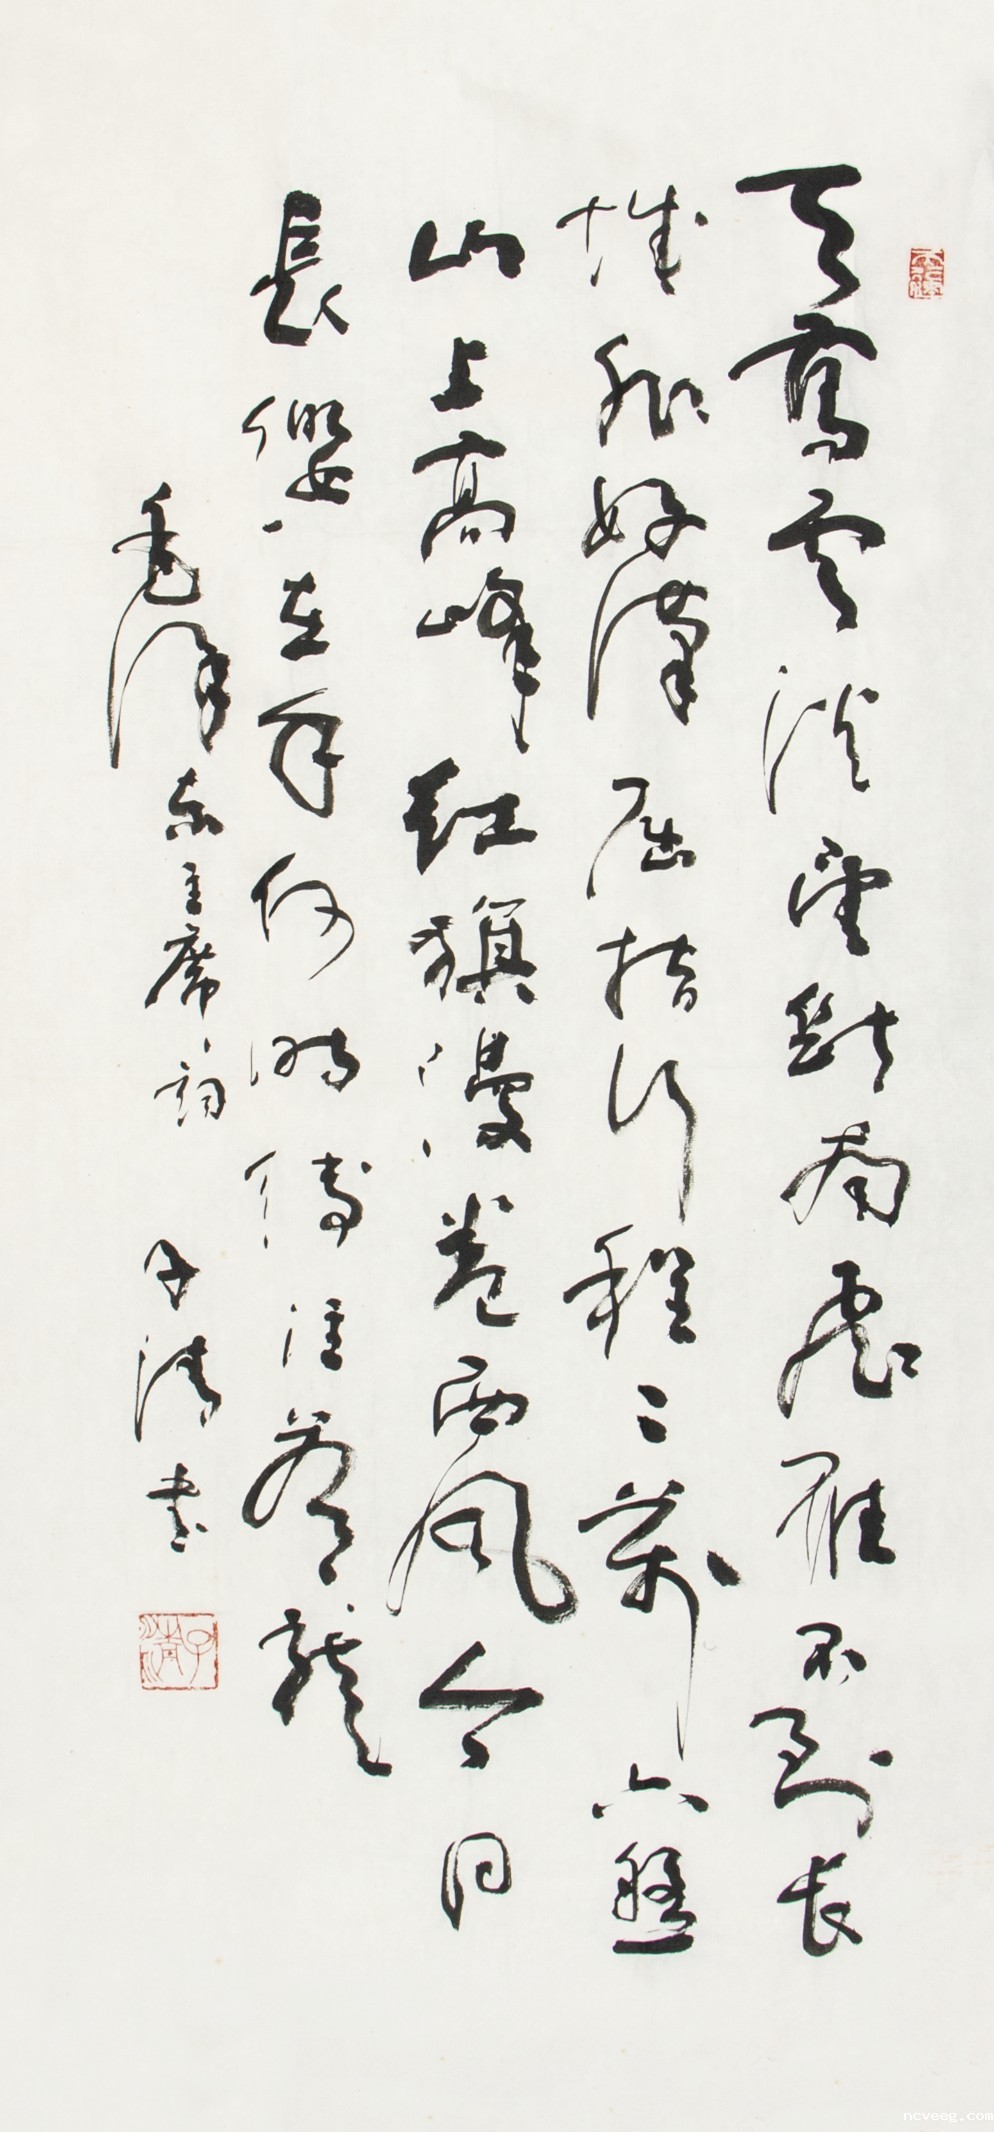 天高云淡望断南飞雁不到长
城非好漢屈指行程二萬六盤
山上高峰红旗漫卷西风今日
長缨在手何时缚住蒼龍
毛泽东主席词 子清书
子清
ncveeg.com